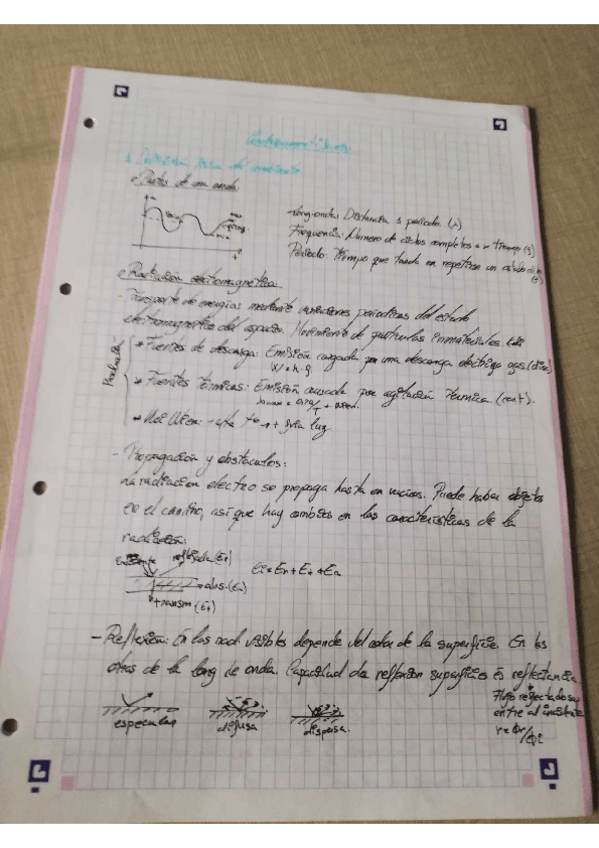 o Partes de una onda
Long. onda: Distancia 1 periodo (λ)
Frequencia: Número de ciclos completos x tiempo (f)
Periodo: Tiempo que tarda en repetirse un ciclo
o Radiación electromagnetica:
- Transporte de energia: mediante variaciones periodicas del estado
electromagnetico del espacio. Movimiento de particulas inmateriales
Fuentes de descarga: Emisión causada por una descarga electrica gas
W = h · f
Fuentes térmicas: Emisión causada por agitación térmica (cont).
luz
- Propagación y obstaculos:
La radiacion electro se propaga hasta en vacios. Puede haber objetos
en el camino, así que hay cambios en las caracteristicas de la
radiación:
reflejada (Er)
abs. (Ea)
transm (Et)
Ei = Er + Et + Ea
- Reflexion: En las rad. visibles depende del color de la superficie. En las
otras de la long de onda. Capacidad de reflexion superficies es reflectancia
Flujo reflectado sup
entre al incidente
especular
difusa
dispersa.